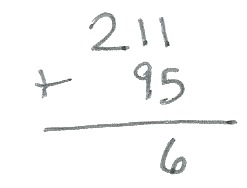 211
+ 95
6